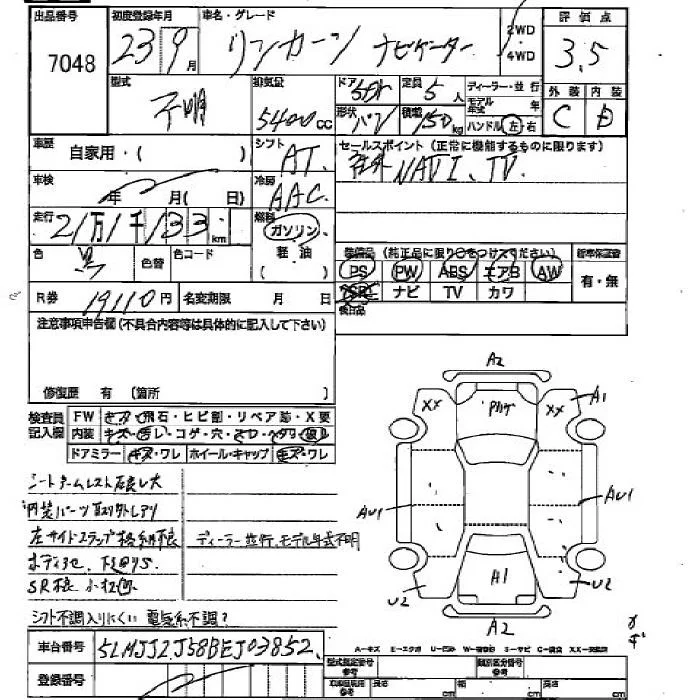 出品番号 初度登録年月 車名・グレード 2WD 4WD 評価点
7048 23 9月 リンカーン ナビゲーター 3.5
型式 不明 排気量 5400cc ドア 5DR 定員 5人 ディーラー・並行 外装 内装
モデル年式 年 C D
形状 バン 積載 150kg ハンドル 左・右
車歴 自家用・( ) シフト AT セールスポイント(正常に機能するものに限ります)
車検 年 月( 日) 冷房 AAC 社外NAVI、TV
走行 2万1千133km 燃料 ガソリン・軽油( )
色 黒 色替 色コード 装備品(純正品に限り○をつけてください) 新車保証書
PS PW ABS エアB AW 有・無
R券 19110円 名変期限 月 日 SR ナビ TV カワ
注意事項申告欄(不具合内容等は具体的に記入して下さい) 後日品
修復歴 有(箇所 )
検査員記入欄 FW キズ・飛石・ヒビ割・リペア跡・X要
内装 キズ・汚レ・コゲ・穴・
ドアミラー キズ・ワレ ホイール・キャップ キズ・ワレ
A2
XX Pハゲ XX A1
AU1 AU1
U2 A1 U2
A2
シートアームレスト
内装パーツ取り外しアリ
左サイドステップ格納不良 ディーラー並行、モデル年式不明
ボディヨゴレ、下廻りS
SR不良
シフト不調入りにくい 電気系不調?
車台番号 5LMJJ2J58BEJ03852
A-キズ E-エクボ U-凹み W-補修跡 S-サビ C-腐食 XX-交換済
登録番号 型式指定番号 参考 類別区分番号 参考
車検証長さ 参考 長さ cm 幅 cm 高さ cm